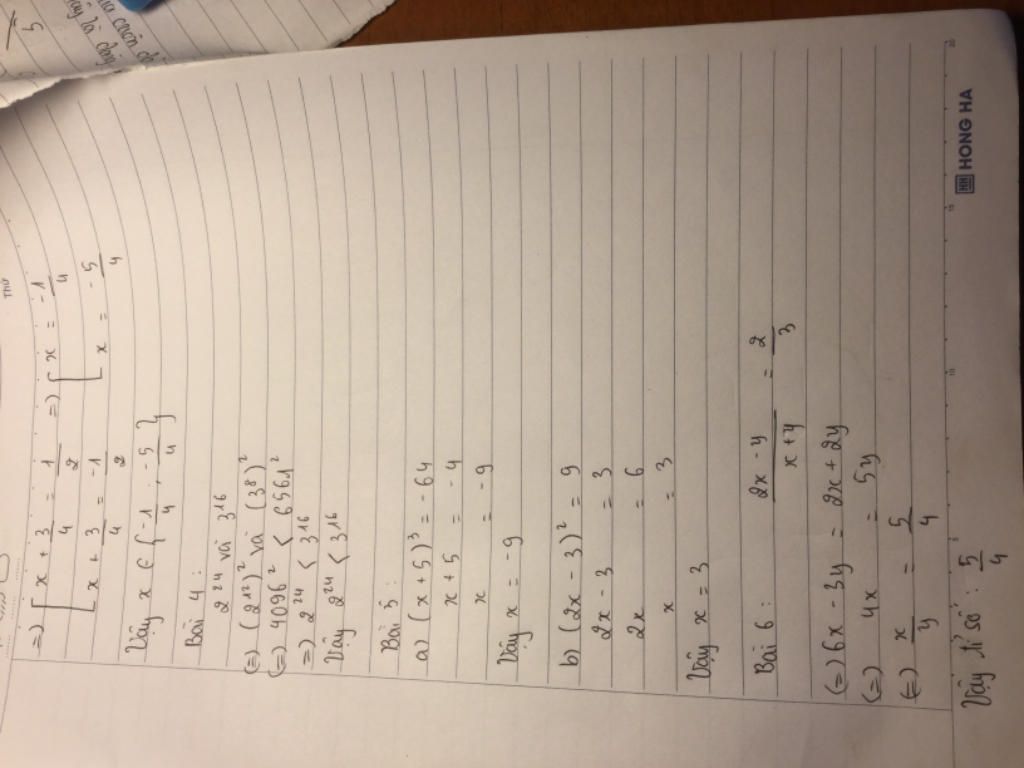 THỨ
=) [ x + 3/4 = 1/2 =) [ x = -1/4
[ x + 3/4 = -1/2 [ x = -5/4
Vậy x ∈ { -1/4 ; -5/4 }
Bài 4 :
2^24 và 3^16
(=) (2^12)^2 và (3^8)^2
(=) 4096^2 < 6561^2
=) 2^24 < 3^16
Vậy 2^24 < 3^16
Bài 3 :
a) (x + 5)^3 = - 64
x + 5 = - 4
x = - 9
Vậy x = - 9
b) (2x - 3)^2 = 9
2x - 3 = 3
2x = 6
x = 3
Vậy x = 3
Bài 6 : (2x - y)/(x + y) = 2/3
(=) 6x - 3y = 2x + 2y
(=) 4x = 5y
(=) x/y = 5/4
Vậy tỉ số : 5/4
HH HONG HA
5 10 15 20